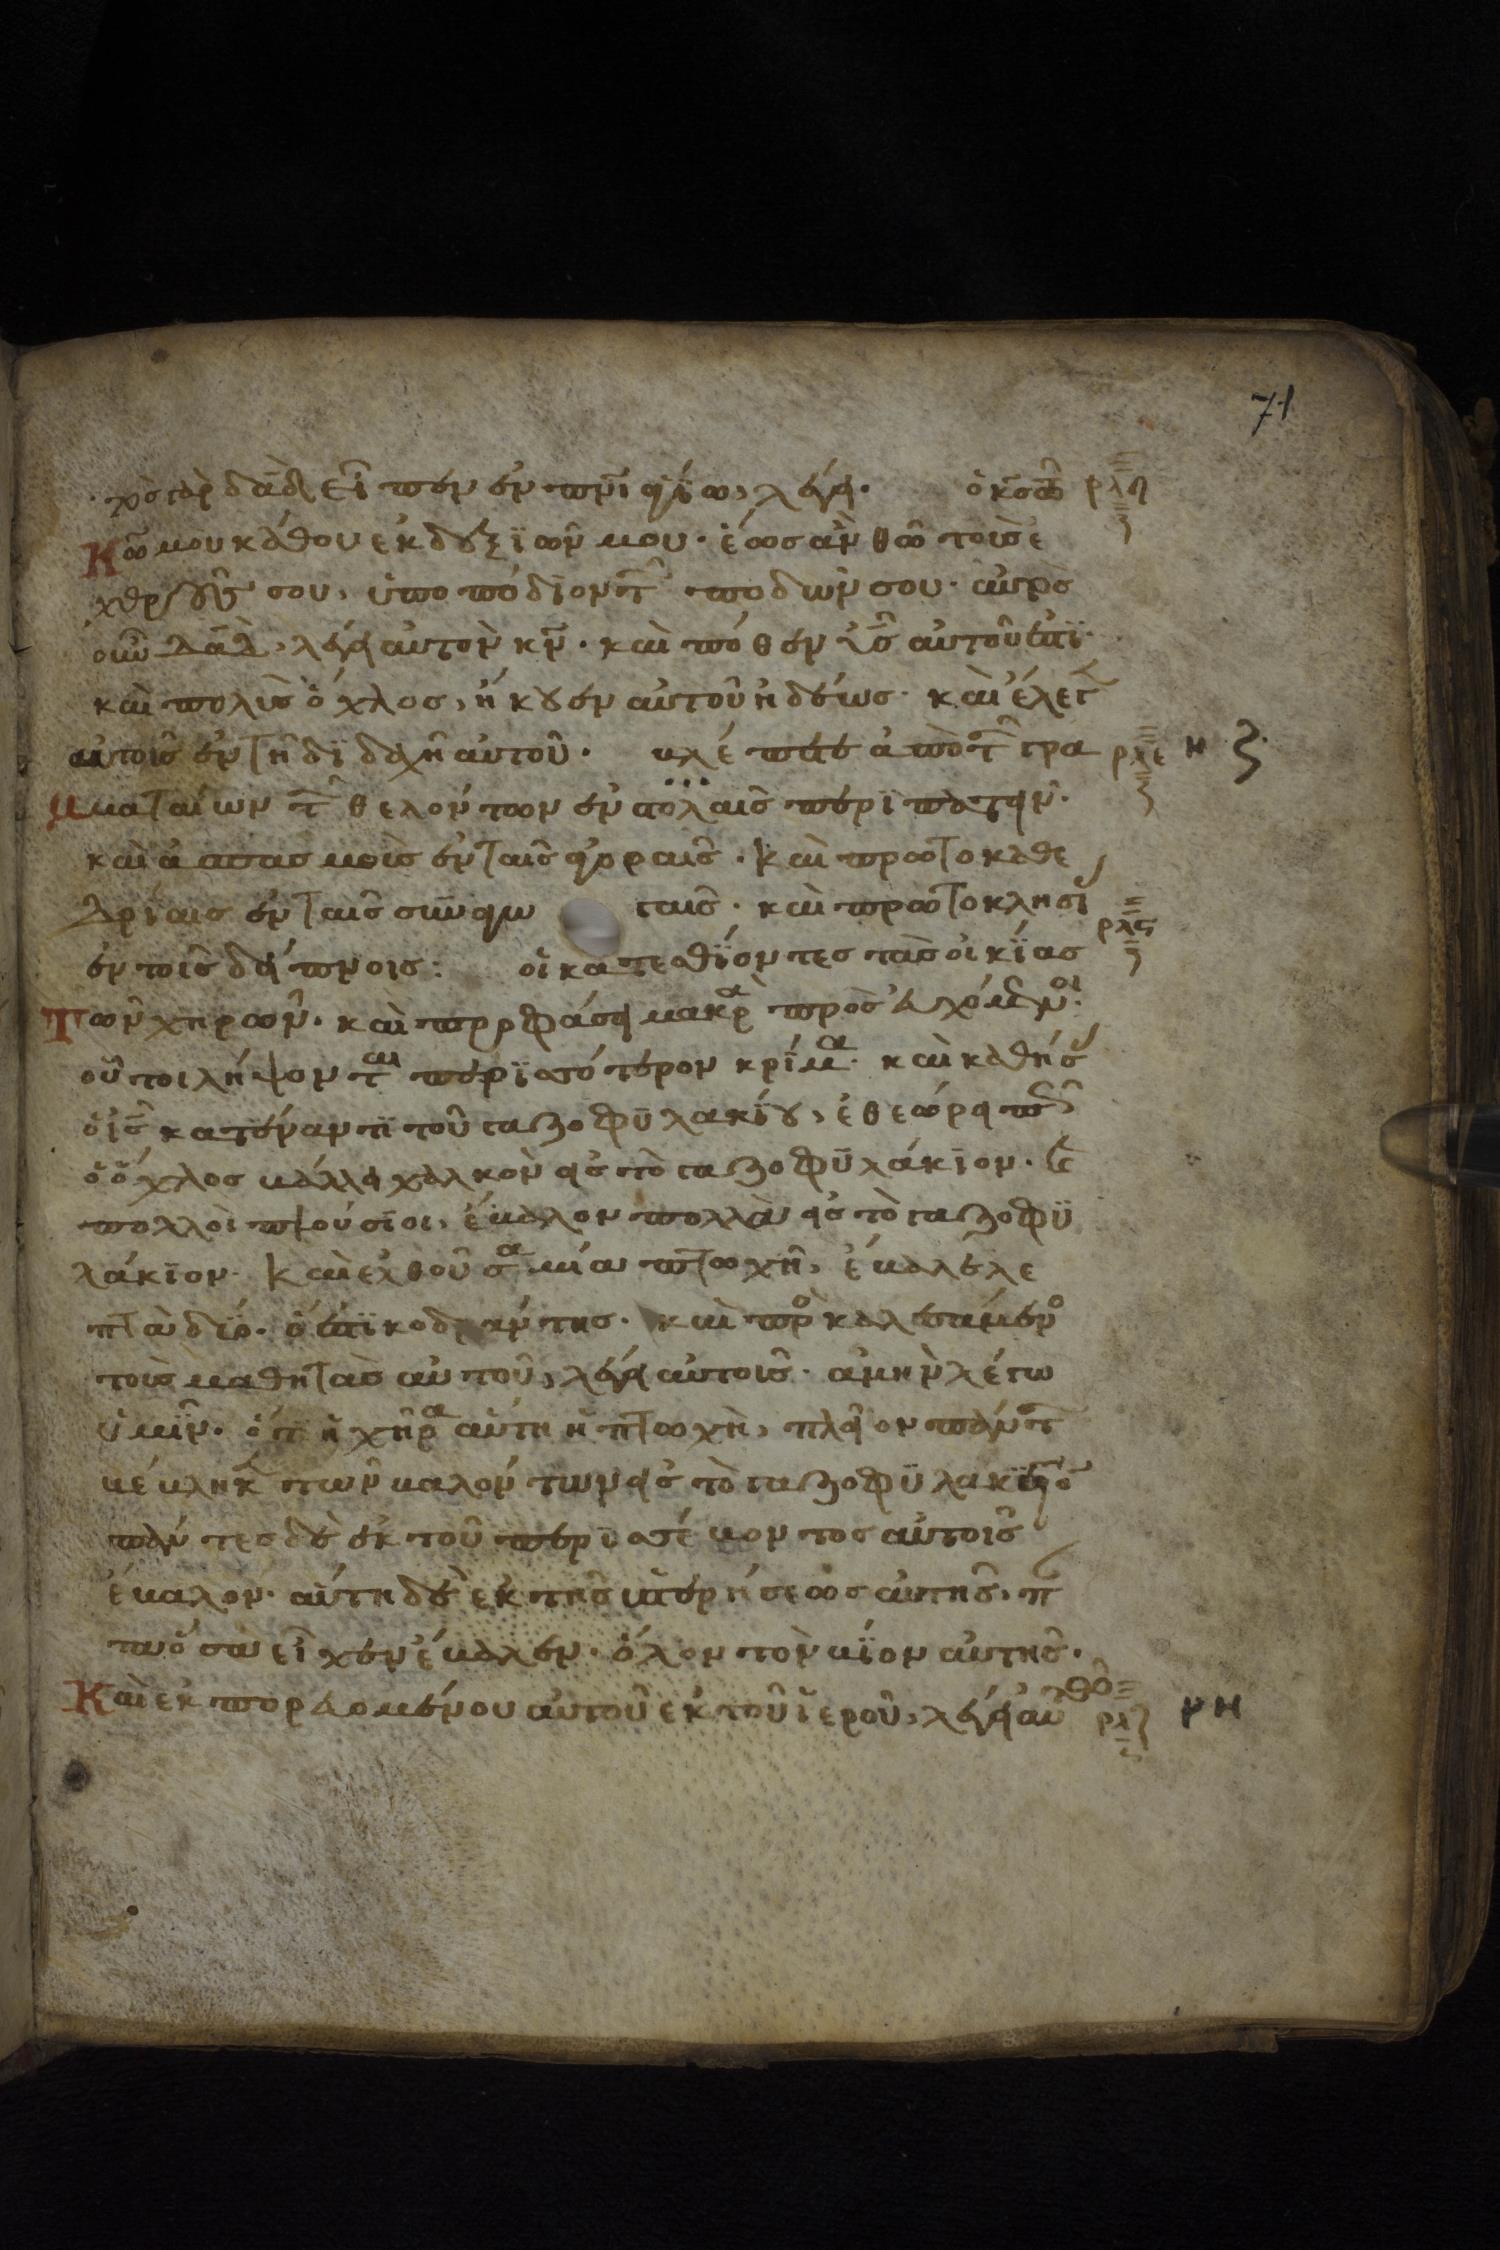 71
τὸς γὰρ δᾱδ εἶπεν ἐν πνῑ ἁγίω, λέγει· ὁ κ̄ς τῶ ρλη
Κῶ μου κάθου ἐκ δεξϊῶν μου· ἕως ἂν θῶ τοὺς ἐ
χθρούς σου, ὑποπόδϊον τῶν ποδῶν σου· αὐτὸς
οὖν δᾱδ, λέγει αὐτὸν κ̄ν· καὶ πόθεν ϋ̄ς αὐτοῦ ἐστϊ·
καὶ πολὺς ὄχλος, ἤκουεν αὐτοῦ ἡδέως· καὶ ἔλεγεν
αὐτοῖς ἐν τῆ δϊδαχῆ αὐτοῦ· βλέπετε ἀπὸ τῶν γρα ρλε
μματαίων τῶν θελόντων ἐν στολαῖς περϊπατεῖν·
καὶ ἀσπασμοὺς ἐν ταῖς ἀγοραῖς· καὶ πρωτοκαθε
δρίαις ἐν ταῖς συναγω γαῖς· καὶ πρωτοκλησί
ἐν τοῖς δείπνοις: οἱ κατεσθίοντες τὰς οἰκίας ρλς
Τῶν χηρῶν· καὶ προφάσει μακρὰ προσευχόμενοι·
οὗτοι λήψονται περϊσσότερον κρίμα· καὶ καθήσ
ὁ ῑς κατέναντϊ τοῦ γαζοφϋλακίου, ἐθεώρει πῶς
ὁ ὄχλος βάλλει χαλκὸν εἰς τὸ γαζοφϋλάκϊον· καὶ
πολλοὶ πλούσϊοι, ἔβαλον πολλὰ εἰς τὸ γαζοφϋ
λάκϊον· καὶ ἐλθοῦσα μία πτωχὴ, ἔβαλε λε
πτὰ δύο· ὅ ἐστϊ κοδράντης· καὶ προσκαλεσάμενος
τοὺς μαθητὰς αὐτοῦ, λέγει αὐτοῖς· ἀμὴν λέγω
ὑμῖν· ὅτϊ ἡ χῆρα αὕτη ἡ πτωχὴ, πλεῖον πάντων
βέβληκε τῶν βαλόντων εἰς τὸ γαζοφϋλάκϊον
πάντες δὲ ἐκ τοῦ περϊσσεύοντος αὐτοῖς
ἔβαλον· αὕτη δὲ ἐκ τῆς ὑστερήσεως αὐτῆς, π
τα ὅσα εἶχεν ἔβαλεν· ὅλον τὸν βίον αὐτῆς·
Καὶ ἐκπορευομένου αὐτοῦ ἐκ τοῦ ἱεροῦ, λέγει αὐ ρλζ